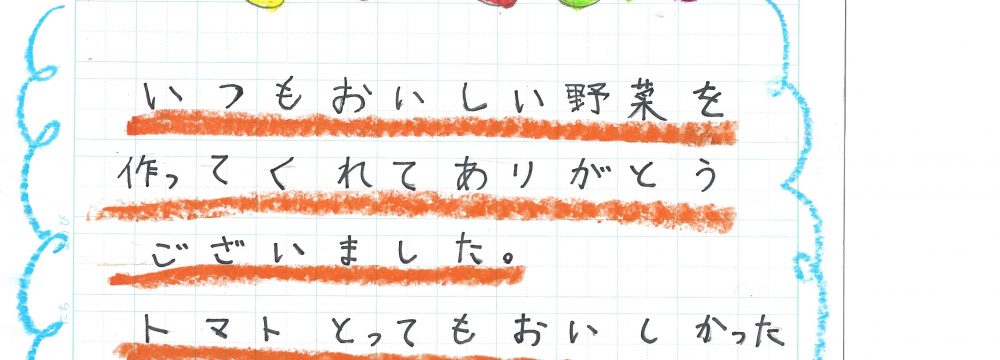 いつもおいしい野菜を
作ってくれてありがとう
ございました。
トマトとってもおいしかった